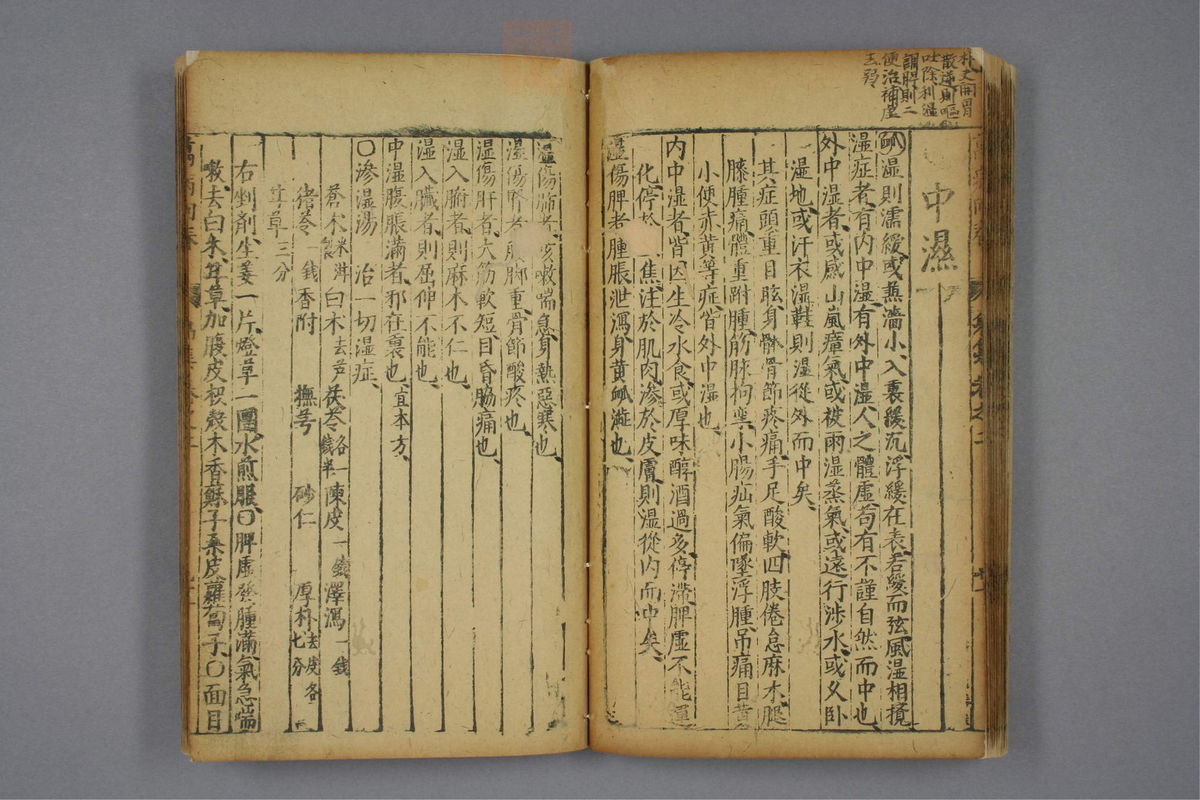 朴丈開胃
散逆則嘔
吐除利濕
謂脾則二
便治補虛
去
中濕
脉濕則濡緩或兼濇小入裏緩沉浮緩在表若緩而弦風濕相攪
濕症者有内中濕有外中濕人之體虛苟有不謹自然而中也
外中濕者或感山嵐瘴氣或被雨濕蒸氣或遠行涉水或久卧
濕地或汗衣濕鞋則濕從外而中矣
其症頭重目眩身體骨節疼痛手足酸軟四肢倦怠麻木腿
膝腫痛體重跗腫筋脉拘攣小腸疝氣偏墜浮腫吊痛目黄
小便赤黄等症皆外中濕也
内中濕者皆因生冷水食或厚味醇酒過多停滯脾虛不能運
化停於 焦注於肌肉滲於皮膚則濕從内而中矣
濕傷脾者腫脹泄瀉身黄 也
濕傷肺者咳嗽喘急身熱惡寒也
濕傷腎者 脚重骨節酸疼也
濕傷肝者大筋軟短目昏脇痛也
濕入腑者則麻木不仁也
濕入臟者則屈伸不能也
中濕腹脹滿者邪在裏也宜本方
〇滲濕湯 治一切濕症
蒼术米泔製 白术去芦 茯苓各一錢半 陳皮一錢 澤瀉一錢
猪苓一錢 香附 撫芎 砂仁 厚朴去皮各七分
甘草三分
右剉劑生姜一片燈草一團水煎服〇脾虛發腫滿氣急喘
嗽去白术甘草加腹皮枳殼木香蘇子桑皮蘿蔔子〇面目